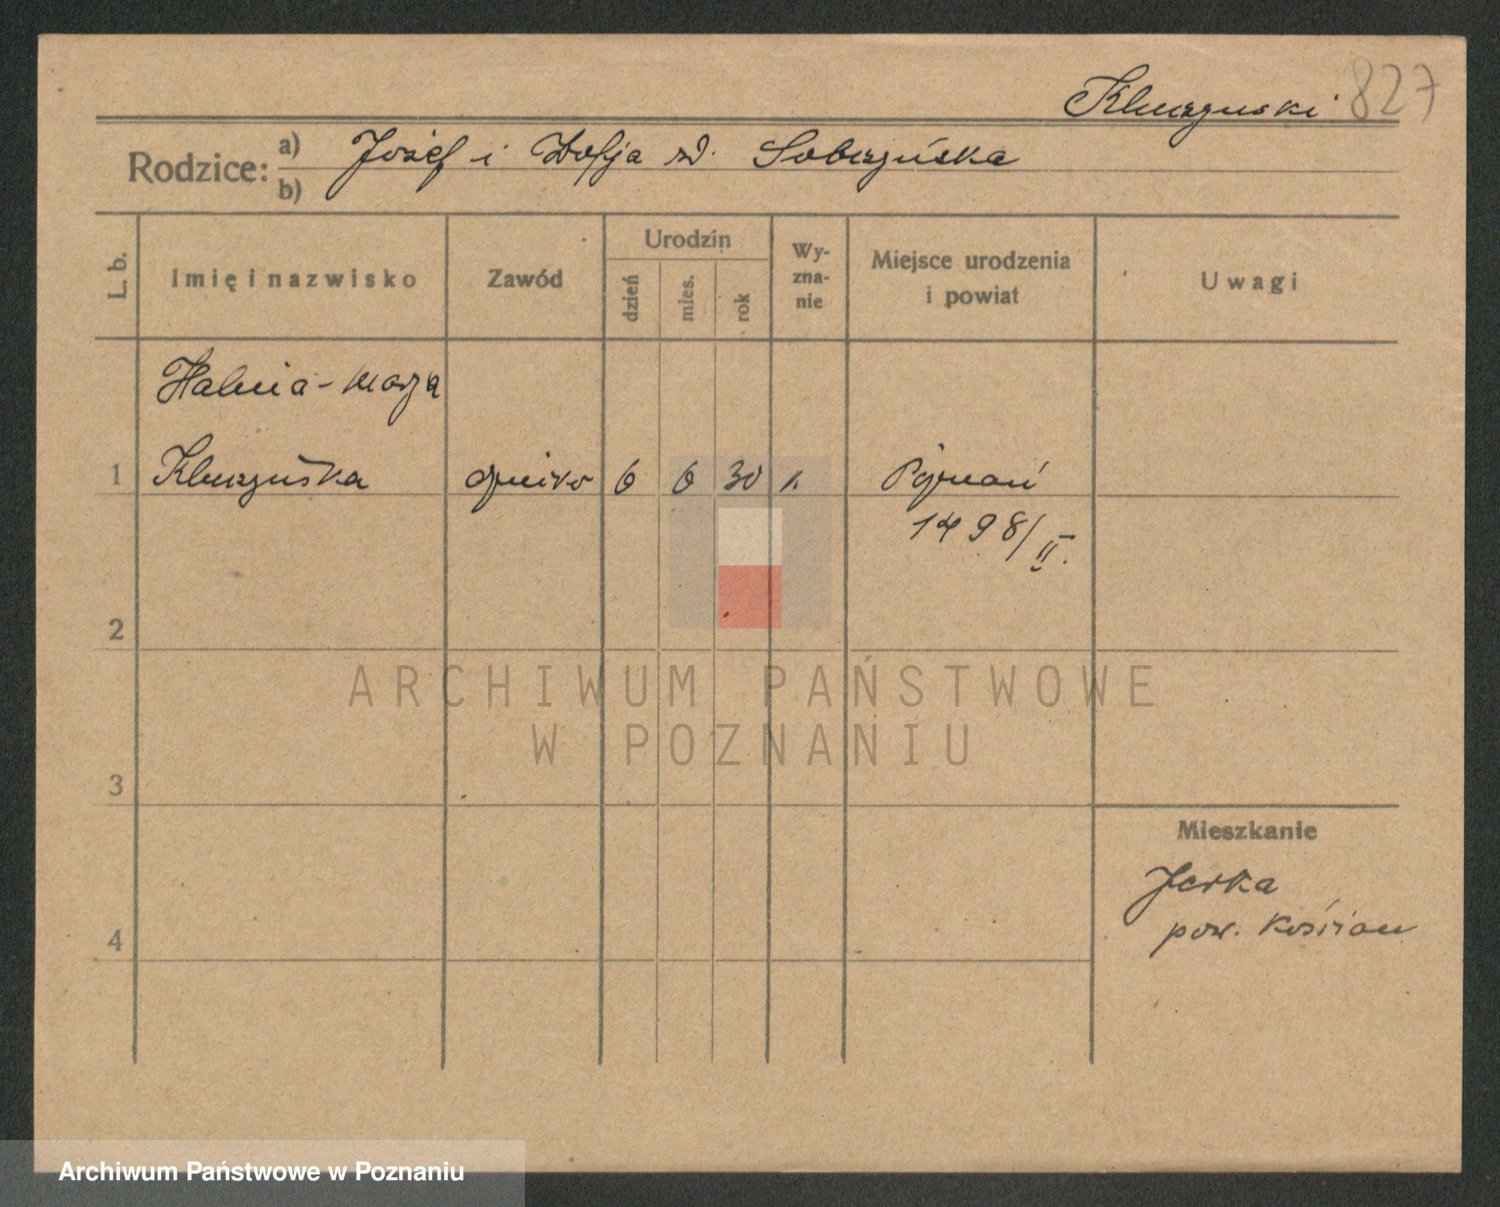 Kluczyński 827
Rodzice: a) Józef i Zofja rd. Sobczyńska
b)
L. b.
Imię i nazwisko
Zawód
Urodzin
dzień
mies.
rok
Wy-
zna-
nie
Miejsce urodzenia
i powiat
Uwagi
Halina-Marja
1 Kluczyńska dziecko 6 6 30 k Poznań
1498/II.
2
ARCHIWUM PAŃSTWOWE
W POZNANIU
3
Mieszkanie
Jerka
pow. Kościan
4
Archiwum Państwowe w Poznaniu